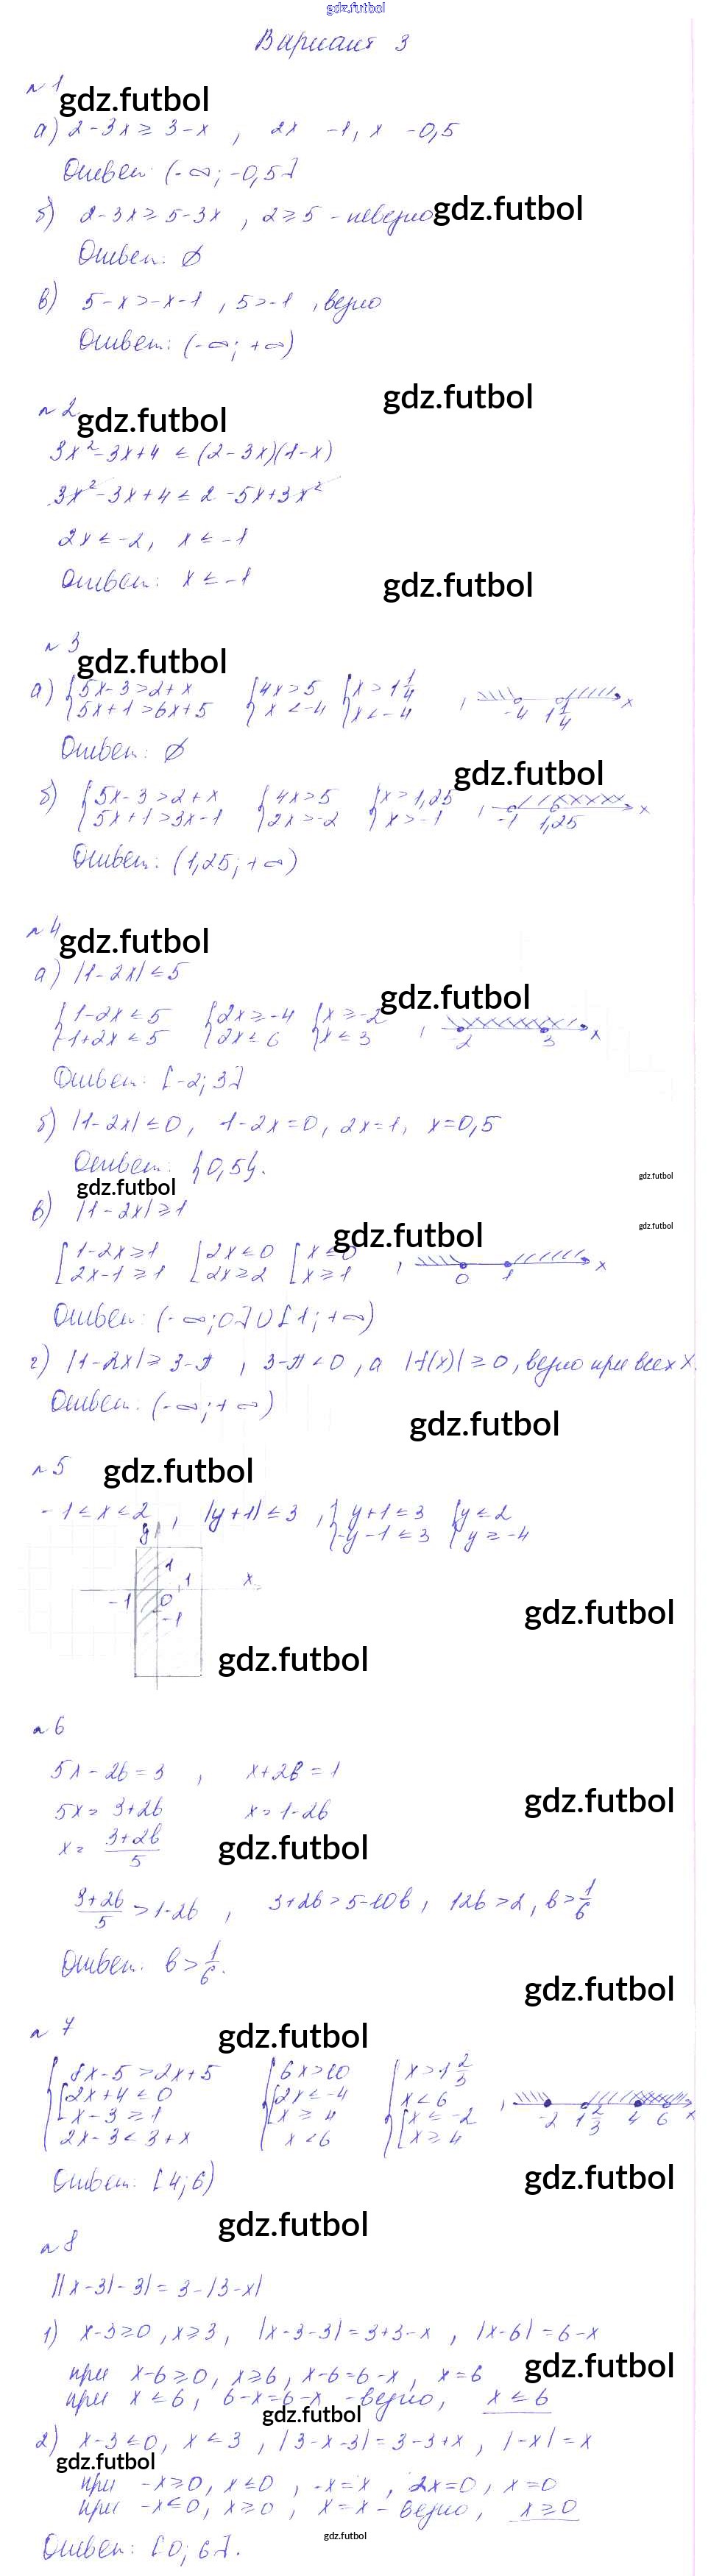 gdz.futbol
Вариант 3
№1
gdz.futbol
а) 2-3x ≥ 3-x , 2x -1, x -0,5
Ответ: (-∞; -0,5]
б) 2-3x ≥ 5-3x , 2 ≥ 5 - неверно
gdz.futbol
Ответ: ∅
в) 5-x > -x-1 , 5 > -1 , верно
Ответ: (-∞; +∞)
gdz.futbol
№2
gdz.futbol
3x²-3x+4 ≤ (2-3x)(1-x)
3x²-3x+4 ≤ 2-5x+3x²
2x ≤ -2, x ≤ -1
Ответ: x ≤ -1
gdz.futbol
№3
gdz.futbol
а) { 5x-3 > 2+x { 4x > 5 { x > 1 1/4
5x+1 > 6x+5 x < -4 x < -4
-4 1 1/4 x
Ответ: ∅
gdz.futbol
б) { 5x-3 > 2+x { 4x > 5 { x > 1,25
5x+1 > 3x-1 2x > -2 x > -1
-1 1,25 x
Ответ: (1,25; +∞)
№4
gdz.futbol
а) |1-2x| ≤ 5
gdz.futbol
{ 1-2x ≤ 5 { 2x ≥ -4 { x ≥ -2
-1+2x ≤ 5 2x ≤ 6 x ≤ 3
-2 3 x
Ответ: [-2; 3]
б) |1-2x| ≤ 0, 1-2x = 0, 2x = 1, x = 0,5
Ответ: {0,5}.
gdz.futbol
gdz.futbol
в) |1-2x| ≥ 1
gdz.futbol
gdz.futbol
[ 1-2x ≥ 1 [ 2x ≤ 0 [ x ≤ 0
2x-1 ≥ 1 2x ≥ 2 x ≥ 1
0 1 x
Ответ: (-∞; 0] U [1; +∞)
г) |1-2x| ≥ 3-π , 3-π < 0 , а |f(x)| ≥ 0, верно при всех x.
Ответ: (-∞; +∞)
gdz.futbol
№5
gdz.futbol
-1 ≤ x ≤ 2 , |y+1| ≤ 3 , { y+1 ≤ 3 { y ≤ 2
-y-1 ≤ 3 y ≥ -4
y
1
1 x
-1 0
-1
gdz.futbol
gdz.futbol
№6
5x-2b = 3 , x+2b = 1
gdz.futbol
5x = 3+2b x = 1-2b
x = 3+2b/5
gdz.futbol
3+2b/5 > 1-2b , 3+2b > 5-10b , 12b > 2, b > 1/6
Ответ: b > 1/6.
gdz.futbol
№7
gdz.futbol
{ 8x-5 > 2x+5 { 6x > 10 { x > 1 2/3
[ 2x+4 ≤ 0 [ 2x ≤ -4 x < 6
x-3 ≥ 1 x ≥ 4 [ x ≤ -2
2x-3 < 3+x x < 6 x ≥ 4
-2 1 2/3 4 6 x
Ответ: [4; 6)
gdz.futbol
gdz.futbol
№8
||x-3|-3| = 3-|3-x|
1) x-3 ≥ 0, x ≥ 3, |x-3-3| = 3+3-x , |x-6| = 6-x
gdz.futbol
при x-6 ≥ 0, x ≥ 6, x-6 = 6-x, x = 6
при x ≤ 6, 6-x = 6-x - верно, x ≤ 6
gdz.futbol
2) x-3 ≤ 0, x ≤ 3 , |3-x-3| = 3-3+x , |-x| = x
gdz.futbol
при -x ≥ 0, x ≤ 0 , -x = x , 2x = 0, x = 0
при -x ≤ 0, x ≥ 0 , x = x - верно, x ≥ 0
gdz.futbol
Ответ: [0; 6].